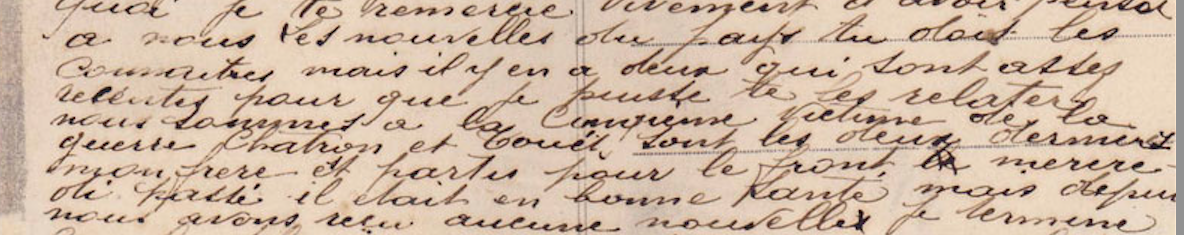 quoi je te remercie vivement d'avoir pensé
a nous les nouvelles du pays tu dois les
connaitres mais il y en a deux qui sont assez
recentes pour que je puisse te les relater
nous sommes a la cinqieme victime de la
guerre Chatron et Couet sont les deux derniers
mon frere et partis pour le front le mercre-
di passé il etait en bonne santé mais depuis
nous avons recu aucune nouvelles je termine